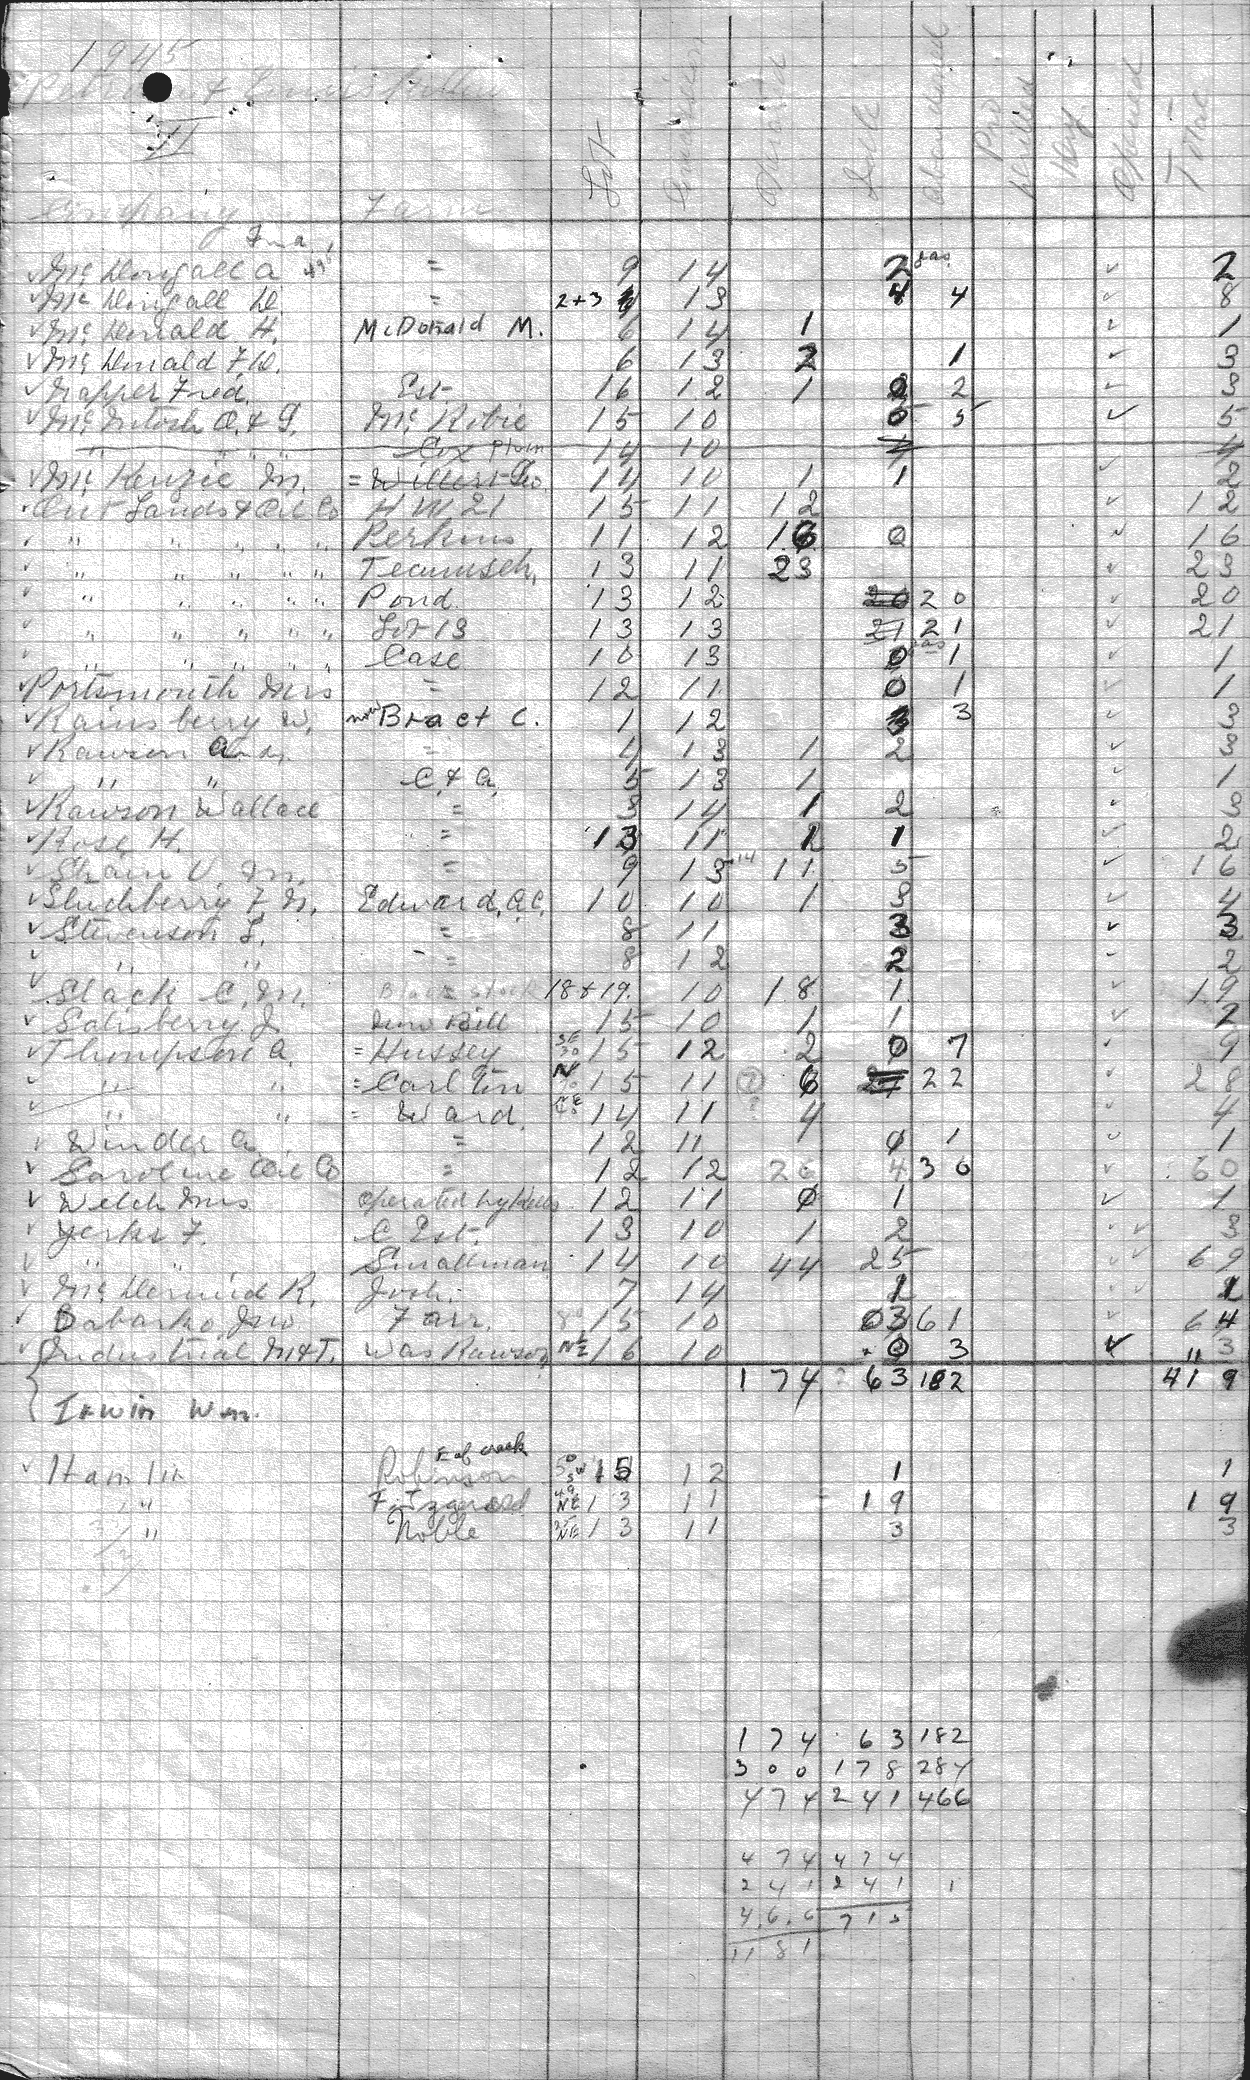 1945
Petrolia & Ennis Killen
II
Company Farm Lot Concession Operated Idle Abandoned Pro Drilled Dry Opened Total
Mc Dougall A = 9 14 2 gas ✓ 2
Mc Dougall D. = 2+3 13 4 4 ✓ 8
Mc Donald H. McDonald M. 6 14 1 ✓ 1
Mc Donald F.W. 6 13 2 1 ✓ 3
Napper Fred. Est. 16 12 1 0 2 ✓ 3
Mc Intosh A. & G. Mc Robie 15 10 0 5 ✓ 5
" " " Cox 14 10 4 4
Mc Kenzie M. = Willert Geo. 14 10 1 1 ✓ 2
Ont Lands & Oil Co H W 21 15 11 12 ✓ 12
" " " " " Perkins 11 12 16 0 ✓ 16
" " " " " Tecumseh, 13 11 23 ✓ 23
" " " " " Pond 13 12 20 20 ✓ 20
" " " " " Lot 13 13 13 21 21 ✓ 21
" " " " Case 10 13 0 gas 1 ✓ 1
Portsmouth Mrs = 12 11 0 1 ✓ 1
Rainsberry W. now Bract C. 1 12 3 3 ✓ 3
Rawson And. = 4 13 1 2 ✓ 3
" " C. & A. 5 13 1 ✓ 1
Rawson Wallace = 3 14 1 2 ✓ 3
Rose H. = 13 11 1 1 ✓ 2
Strain V. M. = 9 13 14 11 5 ✓ 16
Stuchberry F M. Edward, A.C. 10 10 1 3 ✓ 4
Stevenson S. = 8 11 3 ✓ 3
" " = 8 12 2 ✓ 2
Slack C. M. 18 & 19. 10 18 1 ✓ 19
Salisberry J. Bill 15 10 1 1 ✓ 2
Thompson A. = Hussey SE 30 15 12 2 0 7 ✓ 9
" " = Carl Ein 15 11 6 27 22 ✓ 28
" " = Ward. 14 11 4 ✓ 4
Winder A. = 12 11 0 1 ✓ 1
Saroline Oil Co = 12 12 26 4 36 ✓ 60
Welch Mrs operated by 12 11 0 1 ✓ 1
Yerks F. C Est. 13 10 1 2 ✓ 3
" " Smallman 14 10 44 25 ✓ 69
Mc Dermid R. Josh. 7 14 1 ✓ 1
Babarko Jno Farr. 15 10 03 61 ✓ 64
Industrial M&T. was Rawson N½ 16 10 0 3 ✓ 3
174 63 182 419
Irwin Wm.
Hamlin Robinson E of creek 15 12 1 1
" Fitzgerald 49 NE 13 11 19 19
" Noble 25 NE 13 11 3 3
174 63 182
300 178 284
474 241 466
474 474
241 241 1
466 715
1181